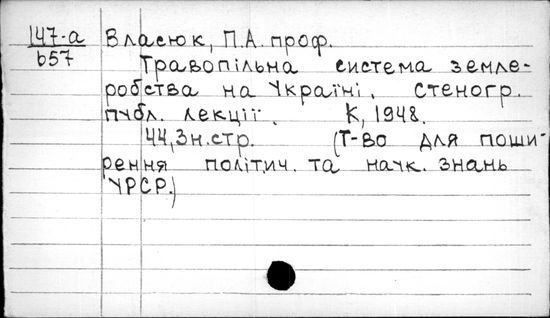 147-а Власюк, П.А. проф.
b57 Травопільна система земле-
робства на Україні. Стеногр.
публ. лекції. К, 1948.
44, 3н. стр. (Т-во для поши-
рення політич. та наук. знань
УРСР.)